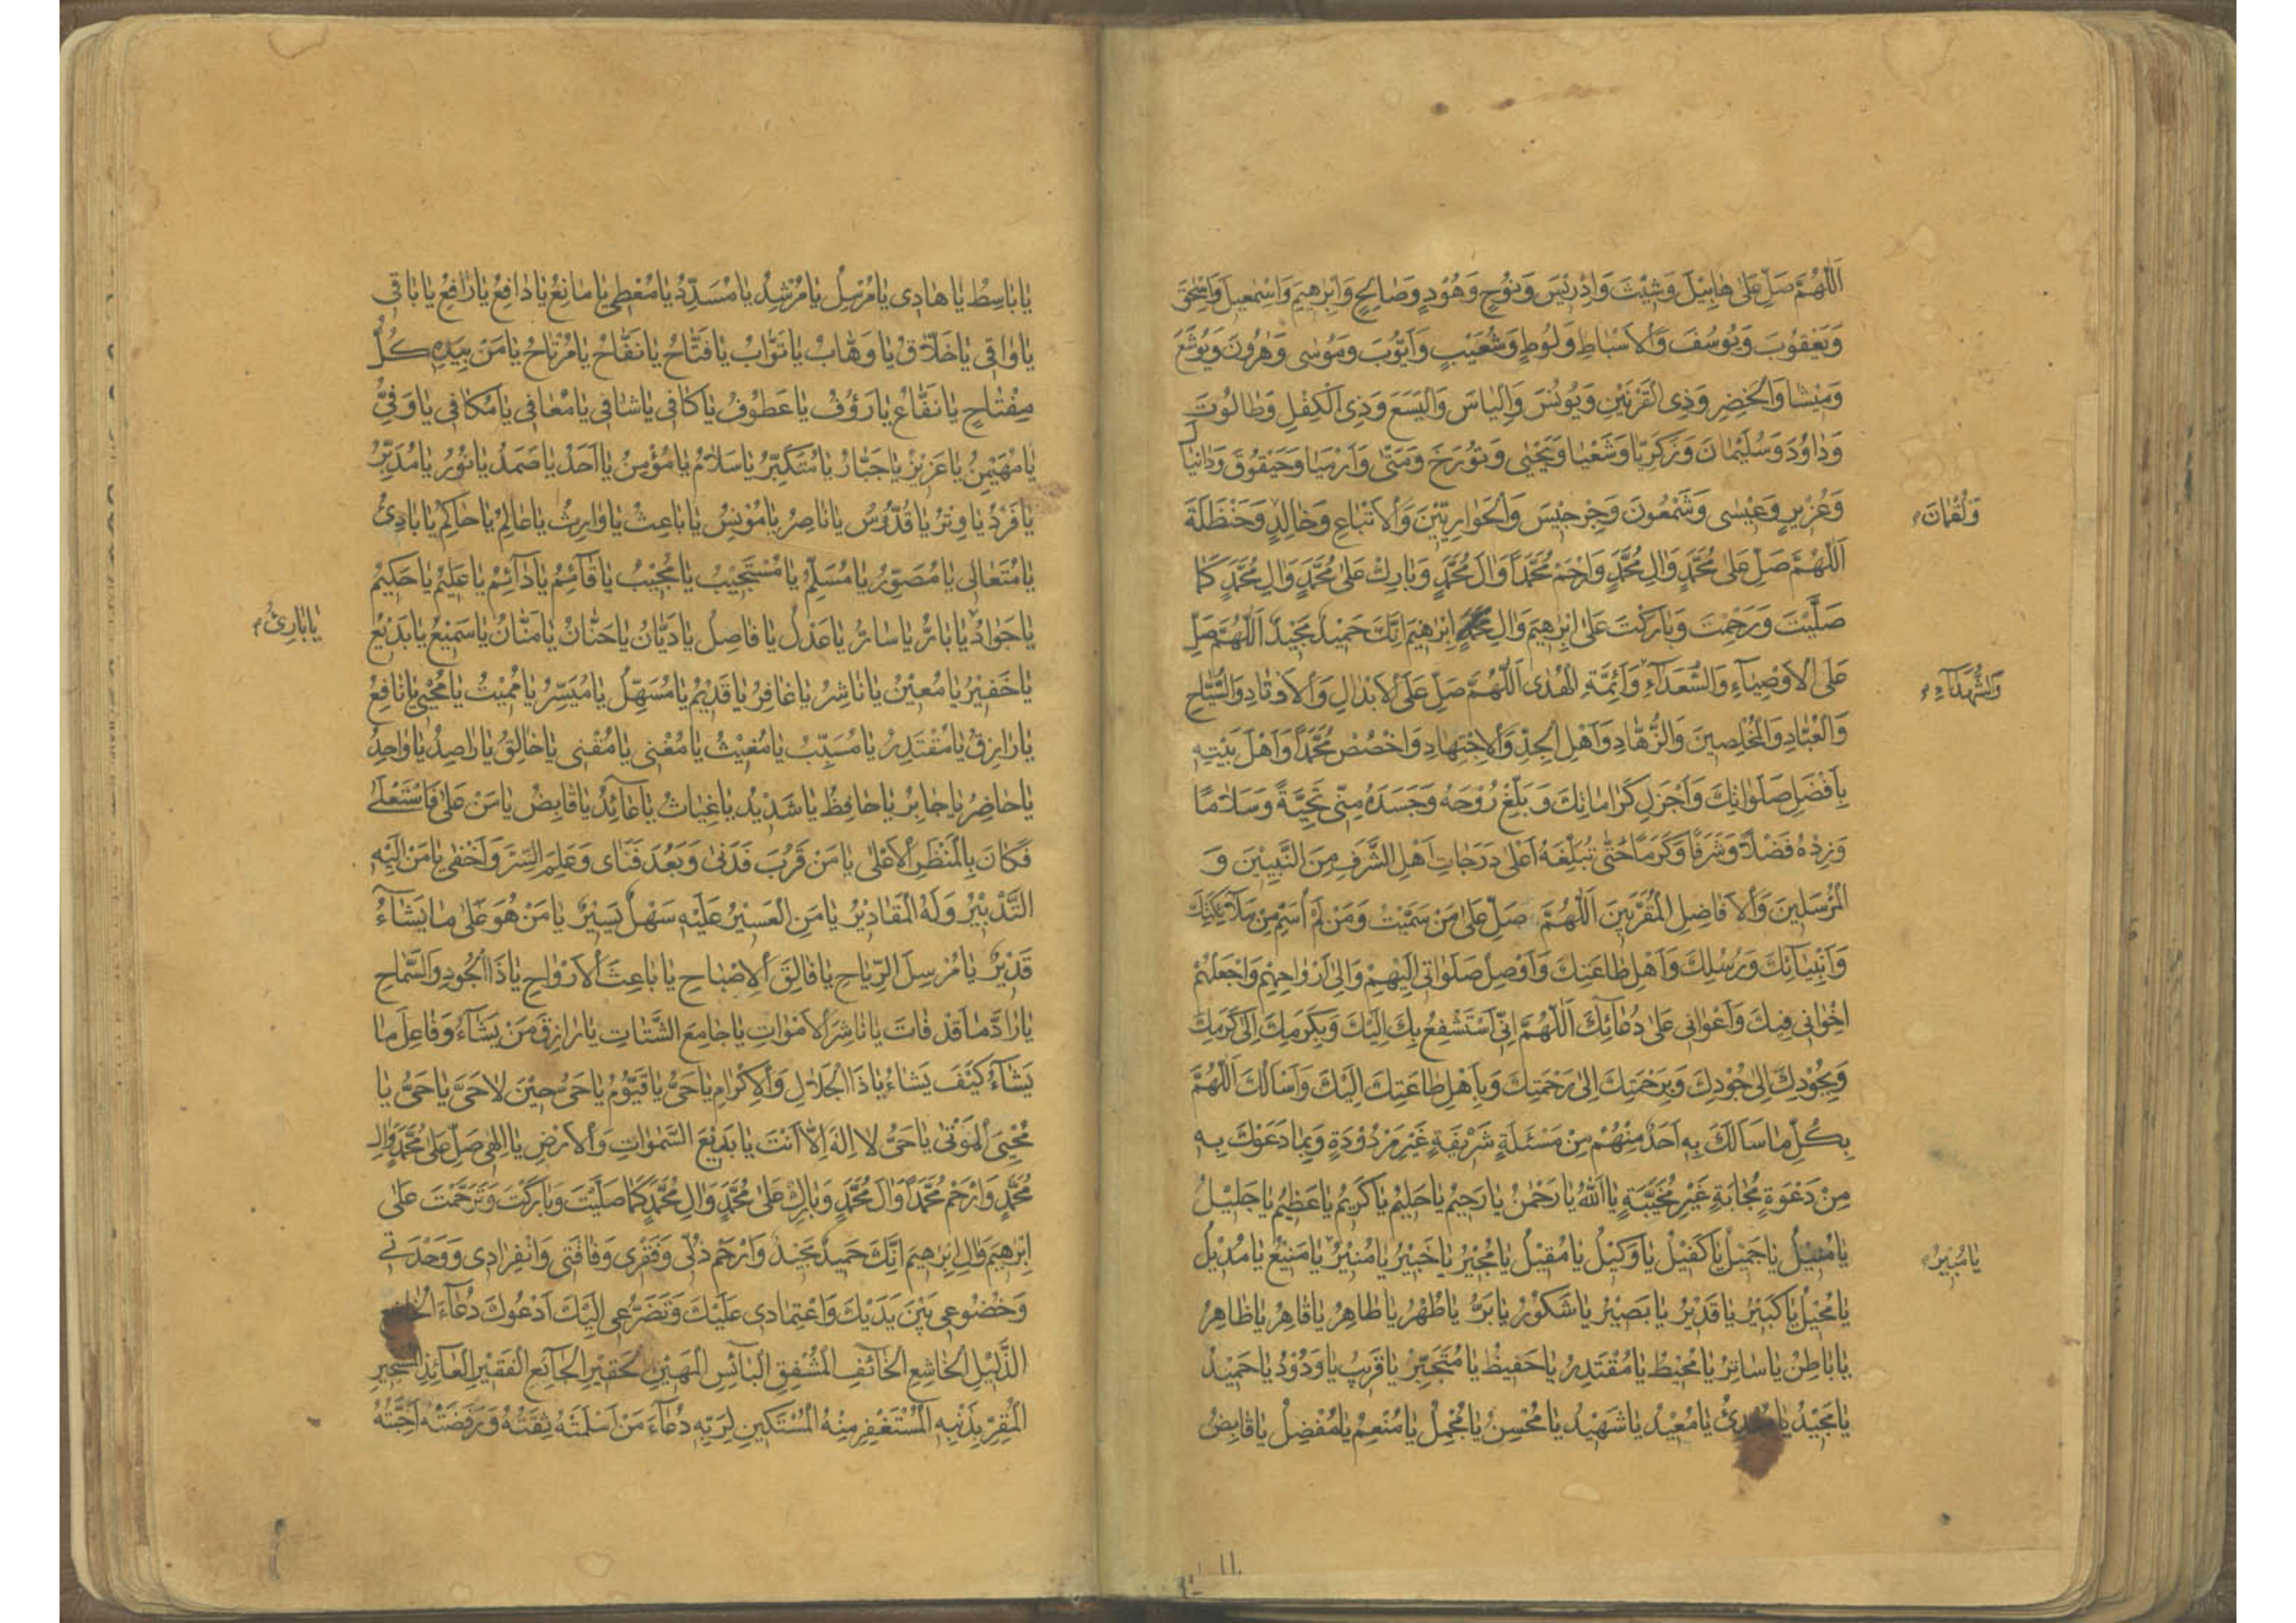 اَللّٰهُمَّ صَلِّ عَلىٰ هٰابِيْلَ وَشِيْثَ وَاِدْرِيْسَ وَنُوْحٍ وَهُوْدٍ وَصٰالِحٍ وَاِبْرٰهيمَ وَاِسْمٰعيلَ وَاِسْحٰقَ
وَيَعْقُوبَ وَيُوسُفَ وَالْاَسْبٰاطِ وَلُوطٍ وَشُعَيْبٍ وَاَيُّوبَ وَمُوسٰى وَهٰرُونَ وَيُوشَعَ
وَمِيْشٰا وَالْخَضِرِ وَذِى الْقَرْنَيْنِ وَيُونُسَ وَاِلْيٰاسَ وَالْيَسَعَ وَذِى الْكِفْلِ وَطٰالُوتَ
وَدٰاوُدَ وَسُلَيْمٰانَ وَزَكَرِيّٰا وَشَعْيٰا وَيَحْيٰى وَتُورَخَ وَمَتّٰى وَاَرْمِيٰا وَحَيْقُوقَ وَدٰانِيٰالَ
وَعُزَيْرٍ وَعِيْسٰى وَشَمْعُونَ وَجِرْجِيْسَ وَالْحَوٰارِيّيْنَ وَالْاَتْبٰاعِ وَخٰالِدٍ وَحَنْظَلَةَ
وَلُقْمٰانَ
اَللّٰهُمَّ صَلِّ عَلىٰ مُحَمَّدٍ وَاٰلِ مُحَمَّدٍ وَارْحَمْ مُحَمَّداً وَاٰلَ مُحَمَّدٍ وَبٰارِكْ عَلىٰ مُحَمَّدٍ وَاٰلِ مُحَمَّدٍ كَمٰا
صَلَّيْتَ وَرَحِمْتَ وَبٰارَكْتَ عَلىٰ اِبْرٰهيمَ وَاٰلِ اِبْرٰهيمَ اِنَّكَ حَمِيْدٌ مَجِيْدٌ اَللّٰهُمَّ صَلِّ
عَلَى الْاَوْصِيٰاءِ وَالسُّعَدٰاءِ وَاَئِمَّةِ الْهُدٰى اَللّٰهُمَّ صَلِّ عَلَى الْاَبْدٰالِ وَالْاَوْتٰادِ وَالسُّيّٰاحِ
وَالشُّهَدٰاءِ
وَالْعُبّٰادِ وَالْمُخْلِصِينَ وَالزُّهّٰادِ وَاَهْلِ الْجِدِّ وَالْاِجْتِهٰادِ وَاخْصُصْ مُحَمَّداً وَاَهْلَ بَيْتِهِ
بِاَفْضَلِ صَلَوٰاتِكَ وَاَجْزَلِ كَرٰامٰاتِكَ وَبَلِّغْ رُوْحَهُ وَجَسَدَهُ مِنّى تَحِيَّةً وَسَلٰامًا
وَزِدْهُ فَضْلاً وَشَرَفًا وَكَرَمًا حَتّٰى تُبَلِّغَهُ اَعْلىٰ دَرَجٰاتِ اَهْلِ الشَّرَفِ مِنَ النَّبِيّيْنَ وَ
الْمُرْسَلِينَ وَالْاَفٰاضِلِ الْمُقَرَّبِينَ اَللّٰهُمَّ صَلِّ عَلىٰ مَنْ سَمَّيْتُ وَمَنْ لَمْ اُسَمِّ مِنْ مَلٰائِكَتِكَ
وَاَنْبِيٰائِكَ وَرُسُلِكَ وَاَهْلِ طٰاعَتِكَ وَاَوْصِلْ صَلَوٰاتى اِلَيْهِمْ وَاِلىٰ اَرْوٰاحِهِمْ وَاجْعَلْهُمْ
اِخْوٰانى فِيكَ وَاَعْوٰانى عَلىٰ دُعٰائِكَ اَللّٰهُمَّ اِنّى اَسْتَشْفِعُ بِكَ اِلَيْكَ وَبِكَرَمِكَ اِلىٰ كَرَمِكَ
وَبِجُوْدِكَ اِلىٰ جُوْدِكَ وَبِرَحْمَتِكَ اِلىٰ رَحْمَتِكَ وَبِاَهْلِ طٰاعَتِكَ اِلَيْكَ وَاَسْاَلُكَ اَللّٰهُمَّ
بِكُلِّ مٰا سَاَلَكَ بِهِ اَحَدٌ مِنْهُمْ مِنْ مَسْئَلَةٍ شَرِيْفَةٍ غَيْرِ مَرْدُوْدَةٍ وَبِمٰا دَعَوْكَ بِهِ
مِنْ دَعْوَةٍ مُجٰابَةٍ غَيْرِ مُخَيَّبَةٍ يٰا اَللّٰهُ يٰا رَحْمٰنُ يٰا رَحِيْمُ يٰا حَلِيْمُ يٰا كَرِيْمُ يٰا عَظِيْمُ يٰا جَلِيْلُ
يٰا مُنِيْلُ يٰا جَمِيْلُ يٰا كَفِيْلُ يٰا وَكِيْلُ يٰا مُقِيْلُ يٰا مُجِيْرُ يٰا خَبِيْرُ يٰا مُنِيْرُ يٰا مَنِيْعُ يٰا مُدِيْلُ
يٰا مُبِيْرُ
يٰا مُحِيْلُ يٰا كَبِيْرُ يٰا قَدِيْرُ يٰا بَصِيْرُ يٰا شَكُوْرُ يٰا بَرُّ يٰا طُهْرُ يٰا طٰاهِرُ يٰا قٰاهِرُ يٰا ظٰاهِرُ
يٰا بٰاطِنُ يٰا سٰاتِرُ يٰا مُحِيْطُ يٰا مُقْتَدِرُ يٰا حَفِيْظُ يٰا مُتَجَبِّرُ يٰا قَرِيْبُ يٰا وَدُوْدُ يٰا حَمِيْدُ
يٰا مَجِيْدُ يٰا مُبْدِئُ يٰا مُعِيْدُ يٰا شَهِيْدُ يٰا مُحْسِنُ يٰا مُجْمِلُ يٰا مُنْعِمُ يٰا مُفْضِلُ يٰا قٰابِضُ
١١
يٰا بٰاسِطُ يٰا هٰادِى يٰا مُرْسِلُ يٰا مُرْشِدُ يٰا مُسَدِّدُ يٰا مُعْطِى يٰا مٰانِعُ يٰا دٰافِعُ يٰا رٰافِعُ يٰا بٰاقى
يٰا وٰاقى يٰا خَلّٰاقُ يٰا وَهّٰابُ يٰا تَوّٰابُ يٰا فَتّٰاحُ يٰا نَفّٰاحُ يٰا مُرْتٰاحُ يٰا مَنْ بِيَدِهِ كُلُّ
مِفْتٰاحٍ يٰا نَفّٰاعُ يٰا رَؤُفُ يٰا عَطُوْفُ يٰا كٰافى يٰا شٰافى يٰا مُعٰافى يٰا مُكٰافى يٰا وَفِىُّ
يٰا مُهَيْمِنُ يٰا عَزِيْزُ يٰا جَبّٰارُ يٰا مُتَكَبِّرُ يٰا سَلٰامُ يٰا مُؤْمِنُ يٰا اَحَدُ يٰا صَمَدُ يٰا نُوْرُ يٰا مُدَبِّرُ
يٰا فَرْدُ يٰا وِتْرُ يٰا قُدُّوْسُ يٰا نٰاصِرُ يٰا مُوْنِسُ يٰا بٰاعِثُ يٰا وٰارِثُ يٰا عٰالِمُ يٰا حٰاكِمُ يٰا بٰادِئُ
يٰا مُتَعٰالى يٰا مُصَوِّرُ يٰا مُسَلِّمُ يٰا مُسْتَجِيْبُ يٰا مُجِيْبُ يٰا قٰائِمُ يٰا دٰائِمُ يٰا عَلِيْمُ يٰا حَكِيْمُ
يٰا جَوٰادُ يٰا بٰارُّ يٰا سٰارُّ يٰا عَدْلُ يٰا فٰاصِلُ يٰا دَيّٰانُ يٰا حَنّٰانُ يٰا مَنّٰانُ يٰا سَمِيْعُ يٰا بَدِيْعُ
يٰا بٰارِئُ
يٰا خَفِيْرُ يٰا مُعِيْنُ يٰا نٰاشِرُ يٰا غٰافِرُ يٰا قَدِيْمُ يٰا مُسَهِّلُ يٰا مُيَسِّرُ يٰا مُمِيْتُ يٰا مُحْيى يٰا نٰافِعُ
يٰا رٰازِقُ يٰا مُقْتَدِرُ يٰا مُسَبِّبُ يٰا مُغِيْثُ يٰا مُغْنى يٰا مُقْنى يٰا خٰالِقُ يٰا رٰاصِدُ يٰا وٰاحِدُ
يٰا حٰاضِرُ يٰا جٰابِرُ يٰا حٰافِظُ يٰا شَدِيْدُ يٰا غِيٰاثُ يٰا عٰائِدُ يٰا قٰابِضُ يٰا مَنْ عَلىٰ فَاسْتَعْلىٰ
فَكٰانَ بِالْمَنْظَرِ الْاَعْلىٰ يٰا مَنْ قَرُبَ فَدَنىٰ وَبَعُدَ فَنَاى وَعَلِمَ السِّرَّ وَاَخْفٰى يٰا مَنْ اِلَيْهِ
التَّدْبِيْرُ وَلَهُ الْمَقٰادِيْرُ يٰا مَنِ الْعَسِيْرُ عَلَيْهِ سَهْلٌ يَسِيْرٌ يٰا مَنْ هُوَ عَلىٰ مٰا يَشٰاءُ
قَدِيْرٌ يٰا مُرْسِلَ الرِّيٰاحِ يٰا فٰالِقَ الْاِصْبٰاحِ يٰا بٰاعِثَ الْاَرْوٰاحِ يٰا ذَا الْجُودِ وَالسَّمٰاحِ
يٰا رٰادَّ مٰا قَدْ فٰاتَ يٰا نٰاشِرَ الْاَمْوٰاتِ يٰا جٰامِعَ الشَّتٰاتِ يٰا رٰازِقَ مَنْ يَشٰاءُ وَفٰاعِلَ مٰا
يَشٰاءُ كَيْفَ يَشٰاءُ يٰا ذَا الْجَلٰالِ وَالْاِكْرٰامِ يٰا حَىُّ يٰا قَيُّوْمُ يٰا حَىُّ حِيْنَ لٰا حَىَّ يٰا حَىُّ يٰا
مُحْيِىَ الْمَوْتٰى يٰا حَىُّ لٰا اِلٰهَ اِلّٰا اَنْتَ يٰا بَدِيْعَ السَّمٰوٰاتِ وَالْاَرْضِ يٰا اِلٰهى صَلِّ عَلىٰ مُحَمَّدٍ وَاٰلِ
مُحَمَّدٍ وَارْحَمْ مُحَمَّداً وَاٰلَ مُحَمَّدٍ وَبٰارِكْ عَلىٰ مُحَمَّدٍ وَاٰلِ مُحَمَّدٍ كَمٰا صَلَّيْتَ وَبٰارَكْتَ وَتَرَحَّمْتَ عَلىٰ
اِبْرٰهيمَ وَاٰلِ اِبْرٰهيمَ اِنَّكَ حَمِيْدٌ مَجِيْدٌ وَارْحَمْ ذُلّى وَفَقْرى وَفٰاقَتى وَانْفِرٰادى وَوَحْدَتى
وَخُضُوعى بَيْنَ يَدَيْكَ وَاعْتِمٰادى عَلَيْكَ وَتَضَرُّعى اِلَيْكَ اَدْعُوكَ دُعٰاءَ الْخٰاضِعِ
الذَّلِيْلِ الْخٰاشِعِ الْخٰائِفِ الْمُشْفِقِ الْبٰائِسِ الْمَهِيْنِ الْحَقِيْرِ الْجٰائِعِ الْفَقِيْرِ الْعٰائِذِ الْمُسْتَجِيْرِ
الْمُقِرِّ بِذَنْبِهِ الْمُسْتَغْفِرِ مِنْهُ الْمُسْتَكِينِ لِرَبِّهِ دُعٰاءَ مَنْ اَسْلَمَتْهُ ثِقَتُهُ وَرَفَضَتْهُ اَحِبَّتُهُ